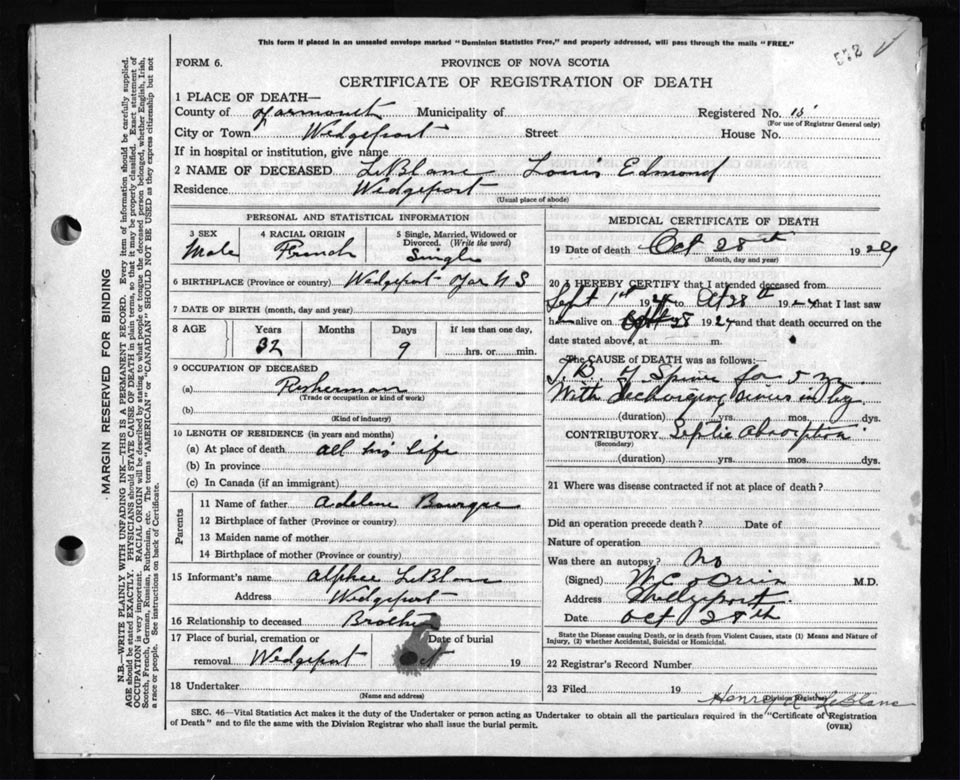 This form if placed in an unsealed envelope marked "Dominion Statistics Free," and properly addressed, will pass through the mails "FREE."
FORM 6.
PROVINCE OF NOVA SCOTIA
CERTIFICATE OF REGISTRATION OF DEATH
1 PLACE OF DEATH—
County of Yarmouth Municipality of Registered No. 15
(For use of Registrar General only)
City or Town Wedgeport Street House No.
If in hospital or institution, give name
2 NAME OF DECEASED LeBlanc Louis Edmond
Residence Wedgeport
(Usual place of abode)
PERSONAL AND STATISTICAL INFORMATION
3 SEX
Male
4 RACIAL ORIGIN
French
5 Single, Married, Widowed or Divorced. (Write the word)
Single
6 BIRTHPLACE (Province or country) Wedgeport Yar N S
7 DATE OF BIRTH (month, day and year)
8 AGE Years Months Days If less than one day,
32 9 hrs. or min.
9 OCCUPATION OF DECEASED
(a) Fisherman
(Trade or occupation or kind of work)
(b)
(Kind of industry)
10 LENGTH OF RESIDENCE (in years and months)
(a) At place of death all his life
(b) In province
(c) In Canada (if an immigrant)
Parents
11 Name of father Bourque
12 Birthplace of father (Province or country)
13 Maiden name of mother
14 Birthplace of mother (Province or country)
15 Informant's name Alphee LeBlanc
Address Wedgeport
16 Relationship to deceased Brother
17 Place of burial, cremation or removal Wedgeport
Date of burial
Oct 19
18 Undertaker
(Name and address)
MEDICAL CERTIFICATE OF DEATH
19 Date of death Oct 28th 1924
(Month, day and year)
20 I HEREBY CERTIFY that I attended deceased from
Sept 1st 1924 to Oct 28th 1924 that I last saw
h alive on 28 1924 and that death occurred on
date stated above, at m.
The CAUSE OF DEATH was as follows:
T.B. of Spine for 5 yrs
With discharging sinus in leg
(duration) yrs. mos. dys.
CONTRIBUTORY Septic absorption
(Secondary)
(duration) yrs. mos. dys.
21 Where was disease contracted if not at place of death?
Did an operation precede death? Date of
Nature of operation
Was there an autopsy? No
(Signed) M.D.
Address Wedgeport
Date Oct 28th
State the Disease causing Death, or in death from Violent Causes, state (1) Means and Nature of Injury, (2) whether Accidental, Suicidal or Homicidal.
22 Registrar's Record Number
23 Filed 19 Henry A LeBlanc
(Division Registrar)
SEC. 46—Vital Statistics Act makes it the duty of the Undertaker or person acting as Undertaker to obtain all the particulars required in the "Certificate of Registration
of Death" and to file the same with the Division Registrar who shall issue the burial permit.
(OVER)
MARGIN RESERVED FOR BINDING
N.B.—WRITE PLAINLY WITH UNFADING INK—THIS IS A PERMANENT RECORD. Every item of information should be carefully supplied.
AGE should be stated EXACTLY. PHYSICIANS should STATE CAUSE OF DEATH in plain terms, so that it may be properly classified. Exact statement of
OCCUPATION is very important. RACIAL ORIGIN will be described by stating to what people or tongue the deceased person belonged, whether English, Irish,
Scotch, French, German, Russian, Ruthenian, etc. The terms "AMERICAN" or "CANADIAN" SHOULD NOT BE USED as they express citizenship but not
a race or people. See instructions on back of Certificate.